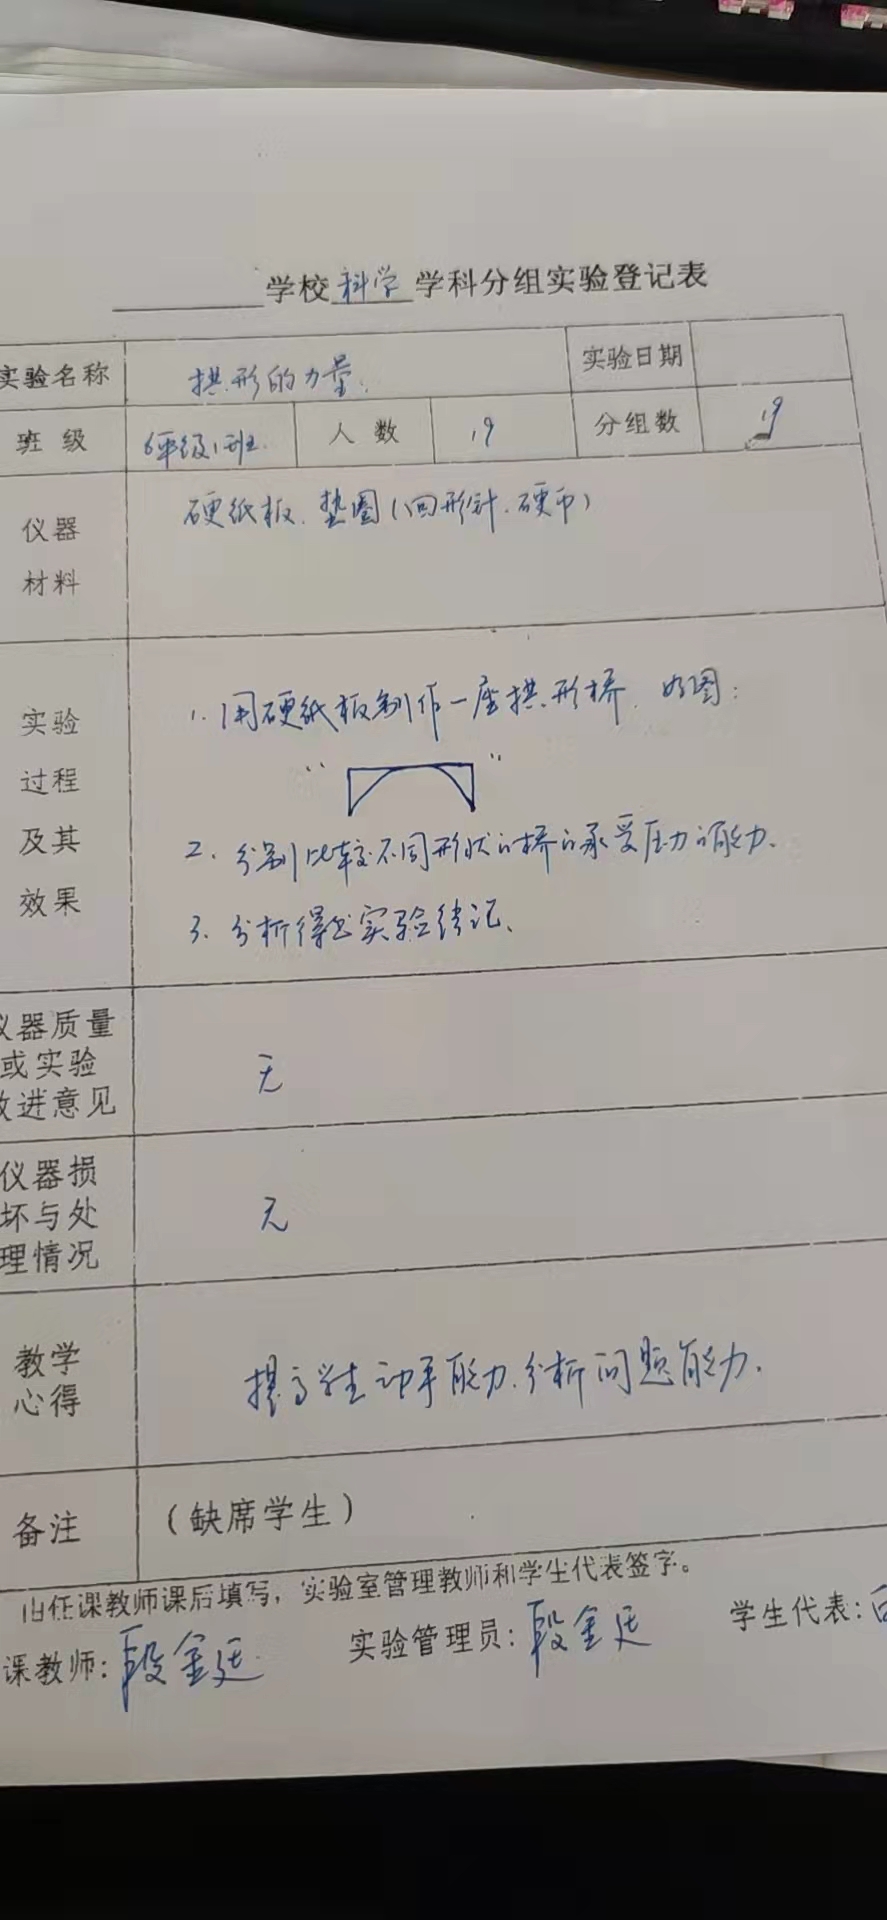 学校科学学科分组实验登记表
实验名称 拱形的力量. 实验日期
班级 6年级1班 人数 19 分组数 19
仪器材料 硬纸板、垫圈(回形针、硬币)
实验过程及其效果
1. 用硬纸板制作一座拱形桥. 如图:
2. 分别比较不同形状的桥的承受压力的能力.
3. 分析得出实验结记、
仪器质量或实验改进意见 无
仪器损坏与处理情况 无
教学心得 提高学生动手能力.分析问题能力.
备注 (缺席学生)
由任课教师课后填写，实验室管理教师和学生代表签字。
课教师:段金廷 实验管理员:段金廷 学生代表: